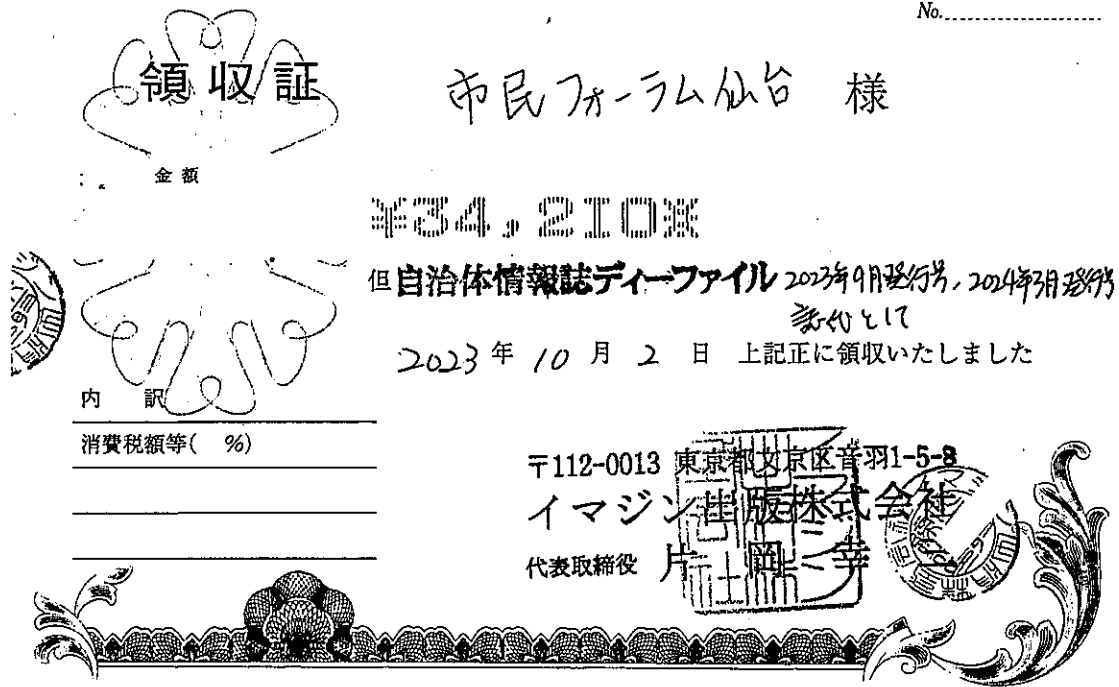 No.
領収証
市民フォーラム仙台 様
金額
¥34,210※
但 自治体情報誌ディーファイル 2023年9月発行号、2024年3月発行号
誌代として
2023年10月2日 上記正に領収いたしました
内訳
消費税額等( %)
〒112-0013 東京都文京区音羽1-5-8
イマジン出版株式会社
代表取締役 片岡幸三